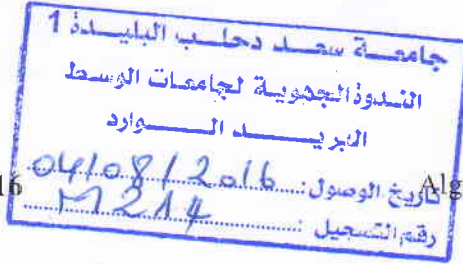 جامعة سعد دحلب البليدة 1
الندوة الجهوية لجامعات الوسط
البريد الوارد
تاريخ الوصول: 04/08/2016
رقم التسجيل: M214
16
Alg